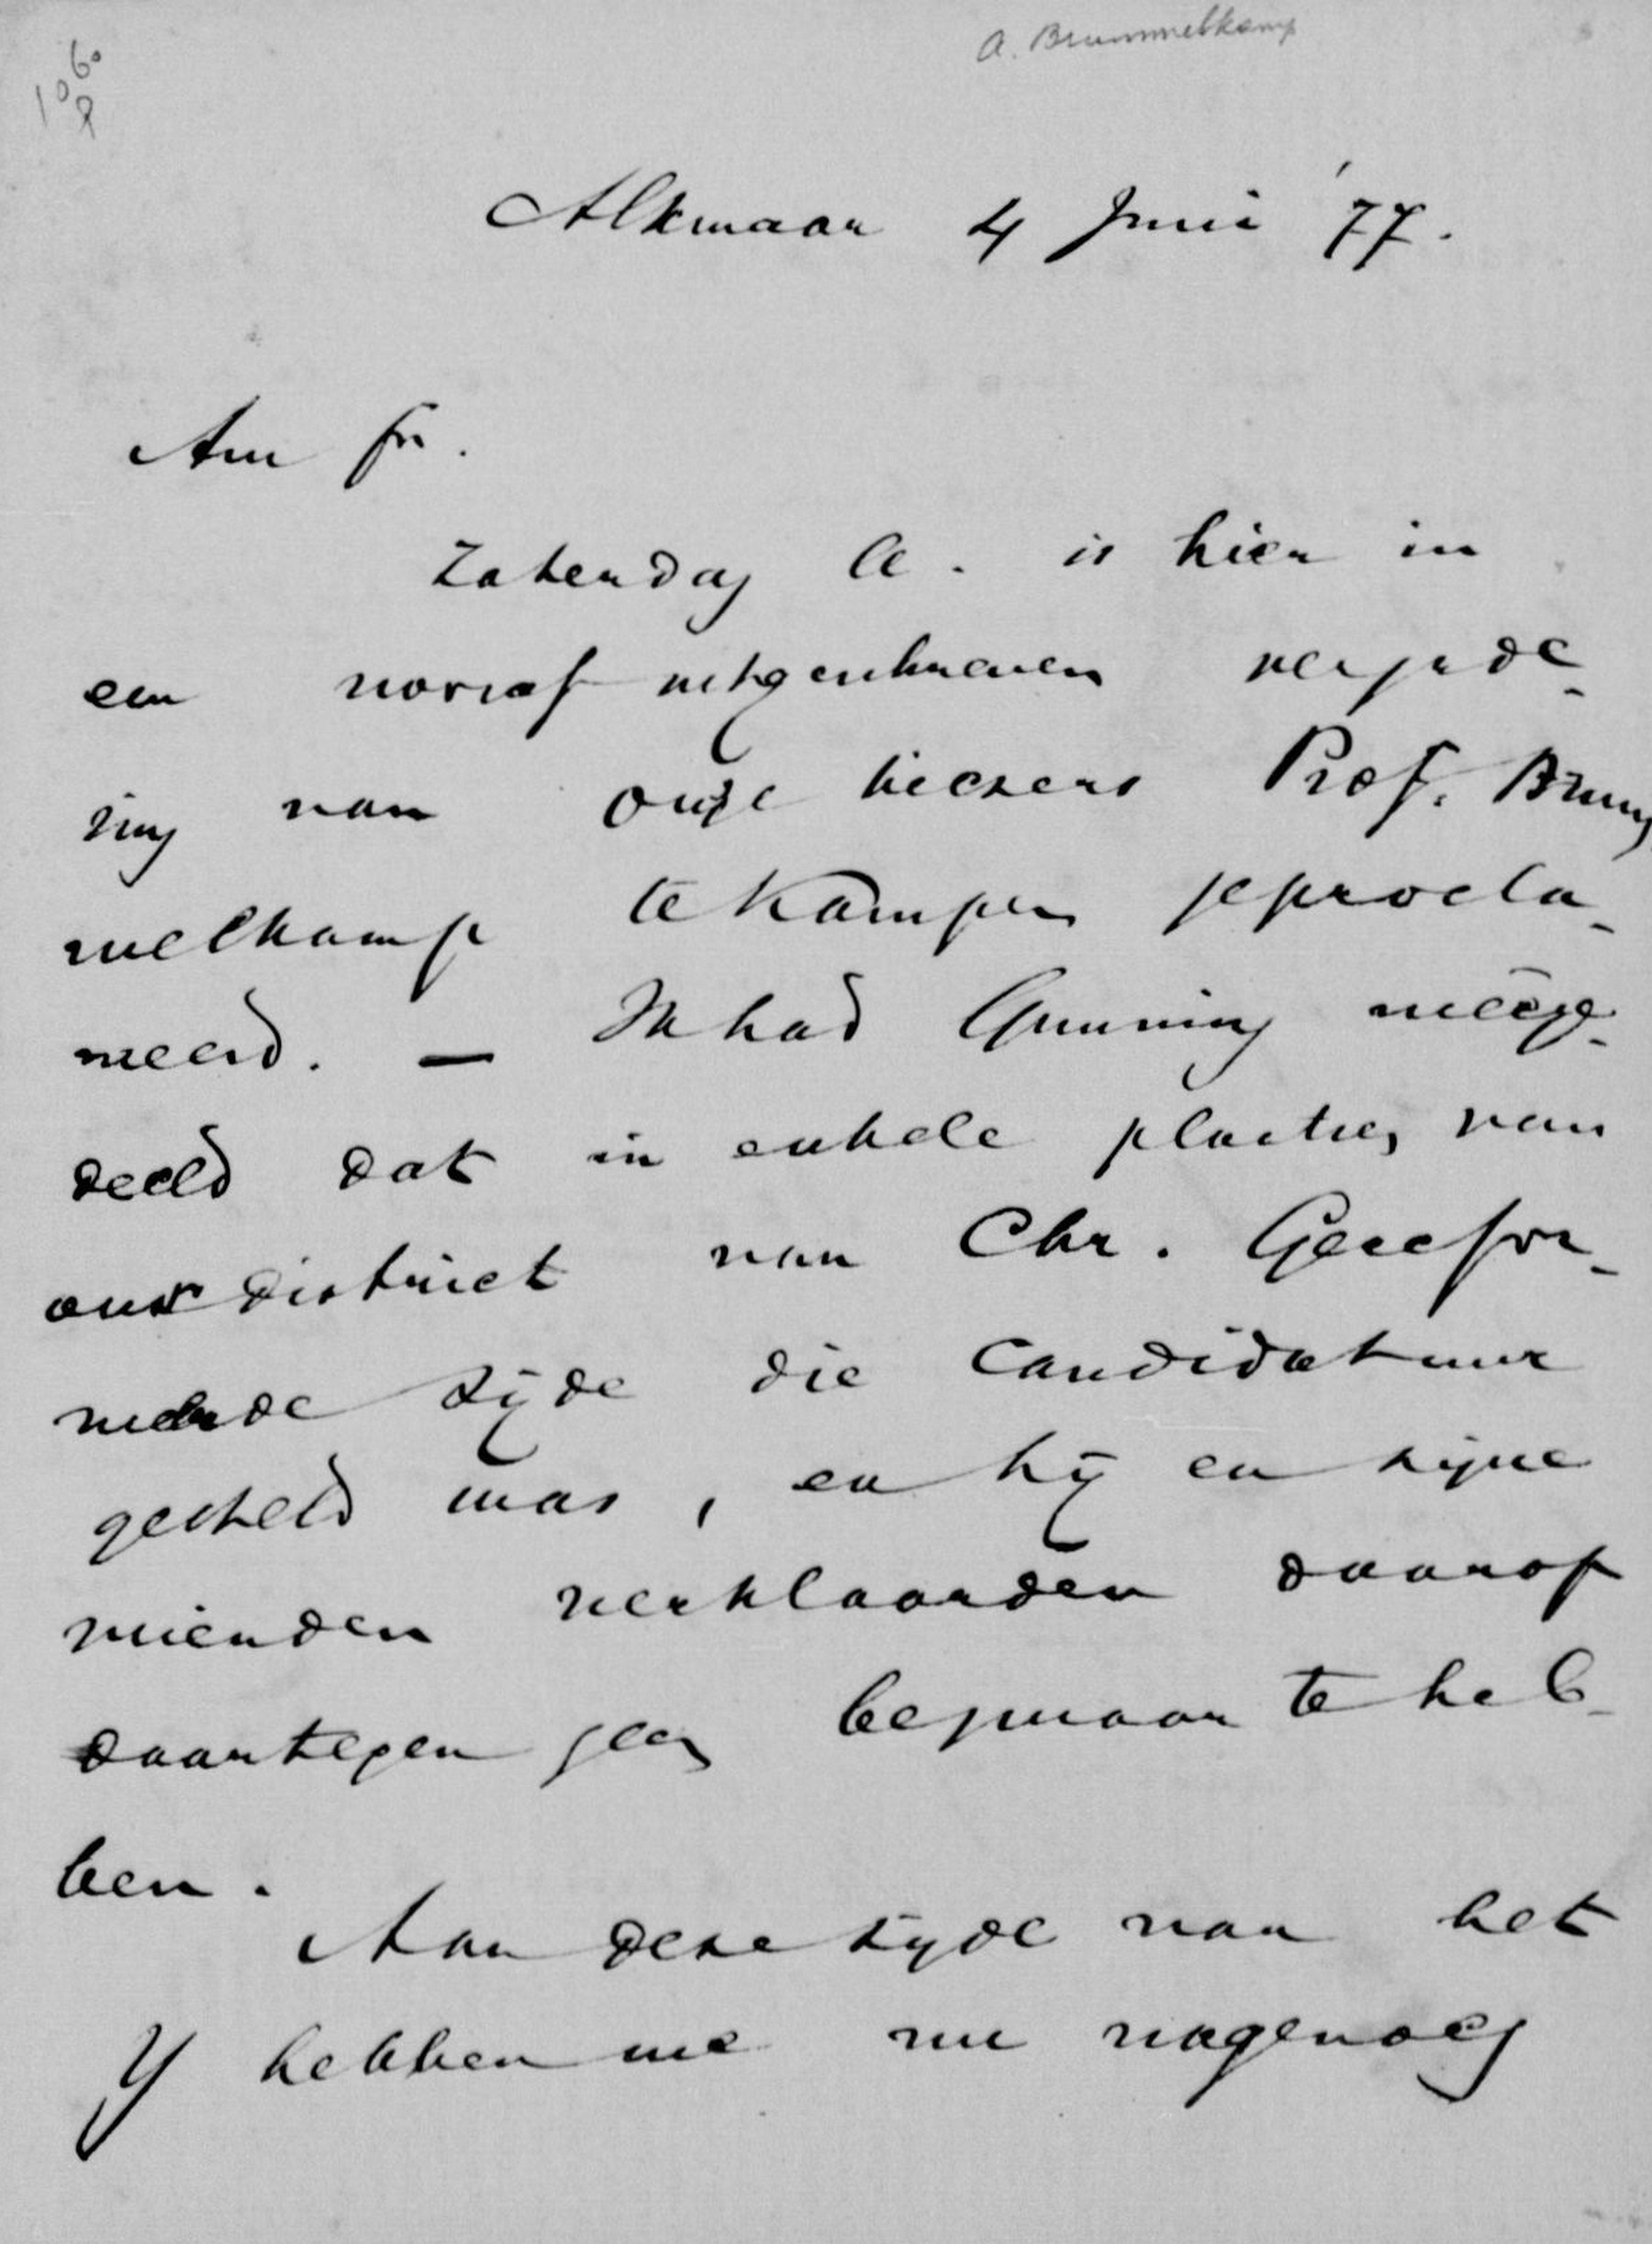 A. Brummelkamp
1060
8
Alkmaar 4 Juni '77.
Am fr.
Zaterdag ll. is hier in
een vooraf uitgeschreven vergade-
ring van onze kiezers Prof. Brum-
melkamp te Kampen geprocla-
meerd. — Ik had Gunning meêge-
deeld dat in enkele plaatsen van
ons district van Chr. Gerefor-
meerde zijde die candidatuur
gesteld was, en hij en zijne
vrienden verklaarden daarop
daartegen geen bezwaar te heb-
ben.
Aan deze zijde van het
Y hebben we nu nagenoeg